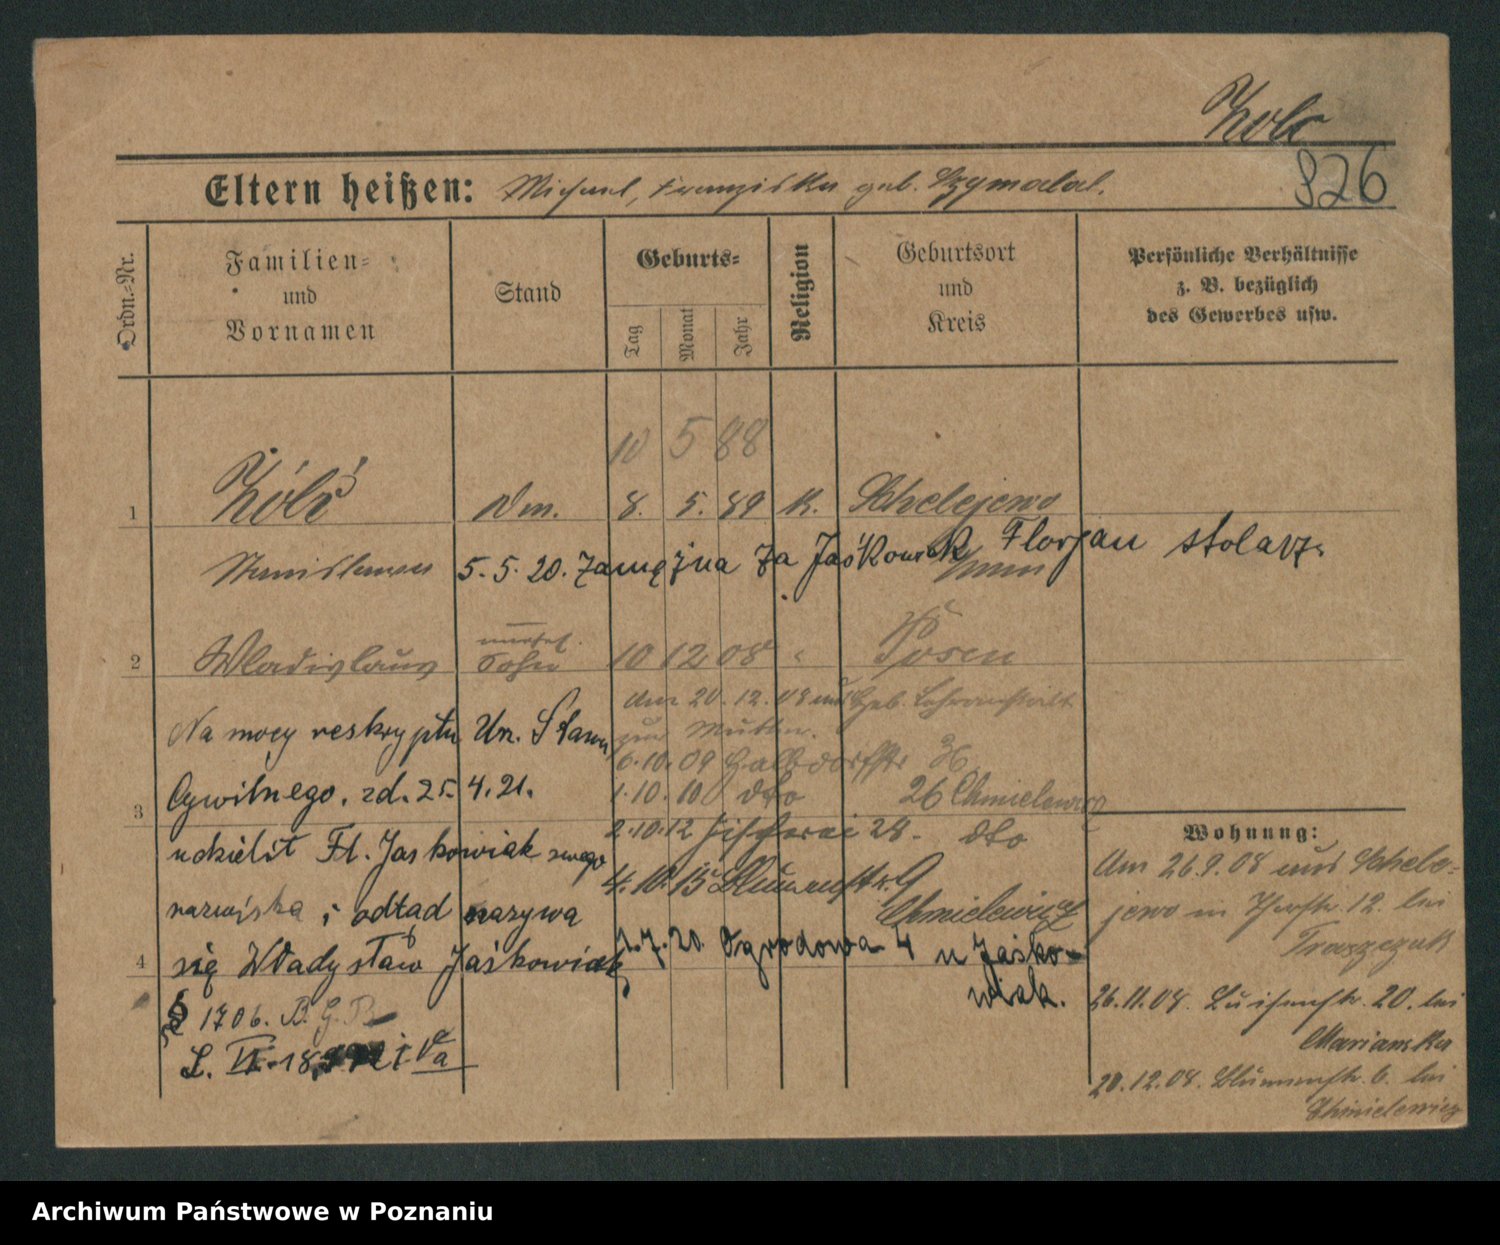 Żółć
826
Eltern heißen: Michael, Franziska geb. Szymalal.
Ordn.=Nr.
Familien= und Vornamen
Stand
Geburts=
Tag
Monat
Jahr
Religion
Geburtsort und Kreis
Persönliche Verhältnisse z. B. bezüglich des Gewerbes usw.
10 5 88
1 Żółć Dm. 8. 5. 89 K. Schelejewo
Stanislawa 5. 5. 20. Zamężna za Jaśkowiak Florjan stolarz.
unehel.
2 Wladislaus Sohn 10 12 08 " Posen
am 20. 12. 08 aus Heb. Lehranstalt
zur Mutter.
Na mocy reskryptu Urz. Stanu
6. 10. 09 Halbdorfstr
Cywilnego. zd. 25. 4. 21.
1. 10. 10 dto 26 Chmielewicz
3
2. 10. 12 Fischerei 28. dto
udzielił Fl. Jaskowiak swego
4. 10. 15 Blumenstr. 9
Chmielewicz
nazwiska i odtąd nazywa
1. 7. 20. Ogrodowa 4 u Jaśko-
wiak.
4 się Władysław Jaśkowiak
§ 1706. B. G. B.
L. VI. 18 i Va
Wohnung:
Am 26. 9. 08 aus Schele-
jewo in Thorstr. 12. bei
Traszczak
26. 11. 08. Luisenstr. 20. bei
Marianska
20. 12. 08. Blumenstr. 6. bei
Chmielewicz
Archiwum Państwowe w Poznaniu